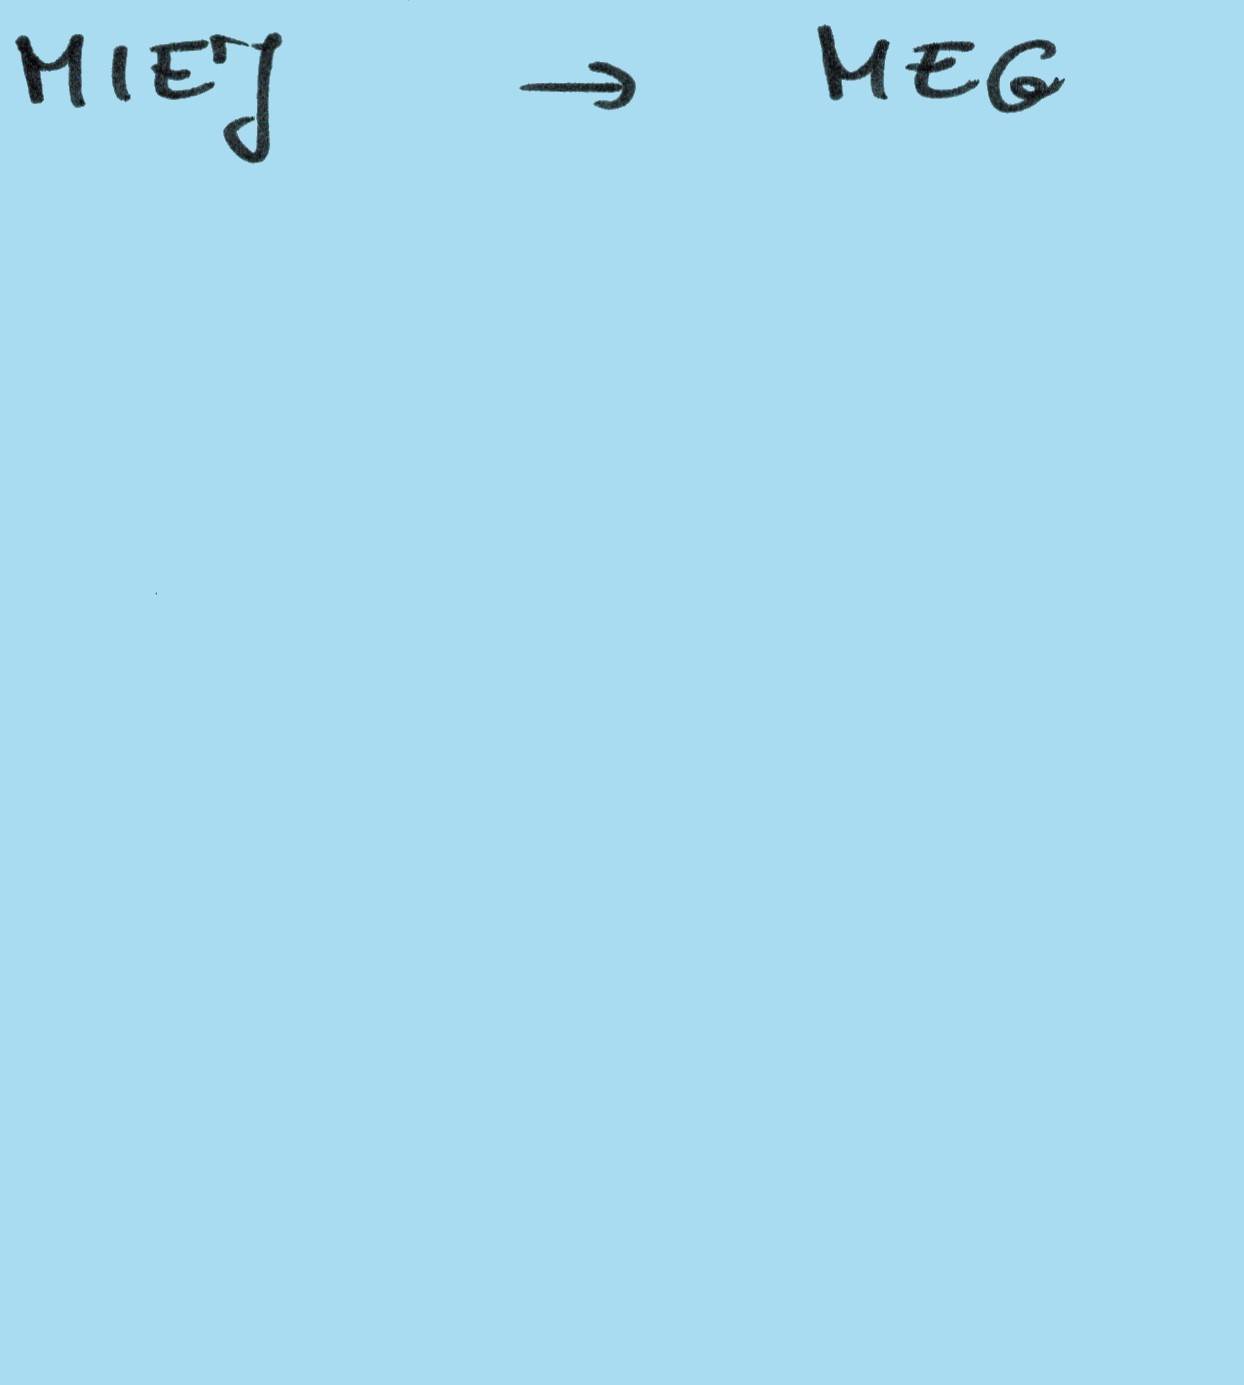 MIEJ → MEG